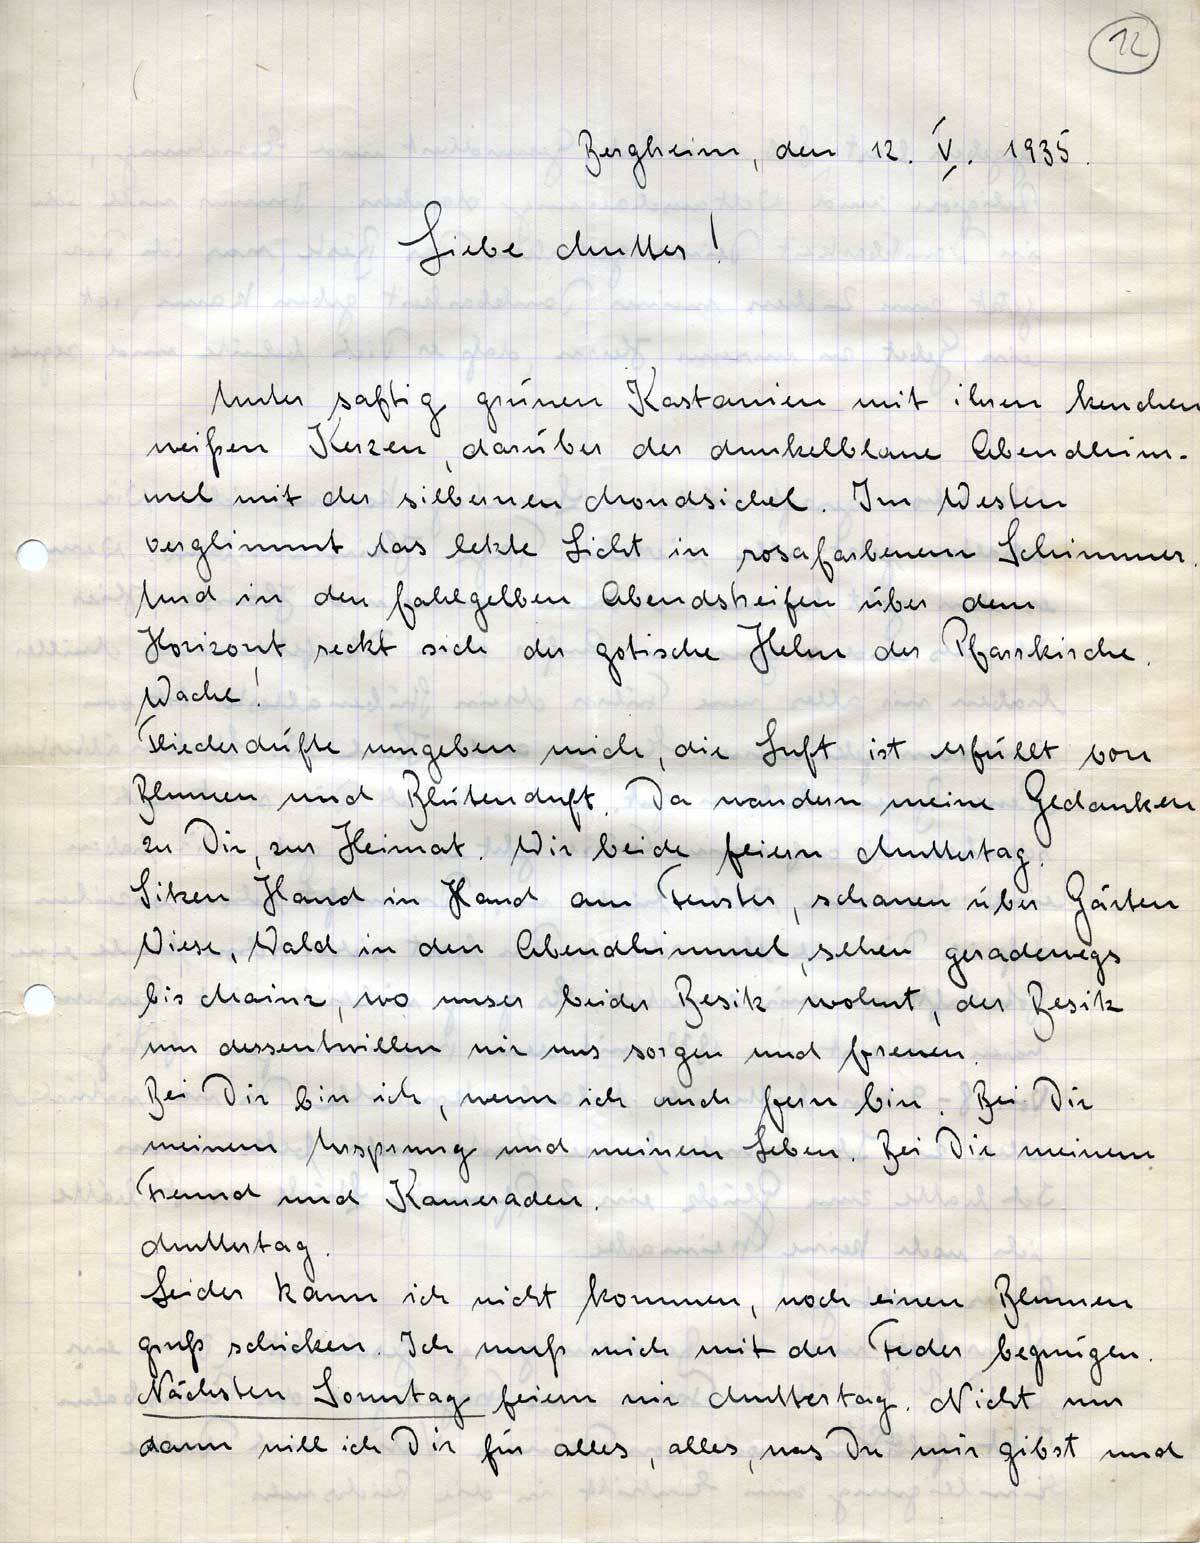 12
Bergheim, den 12. V. 1935.
Liebe Mutter!
Unter saftig grünen Kastanien mit ihren keuchen
weißen Kerzen, darüber der dunkelblaue Abendhim-
mel mit der silbernen Mondsichel. Im Westen
verglimmt das letzte Licht in rosafarbenem Schimmer.
Und in den fahlgelben Abendstreifen über dem
Horizont reckt sich der gotische Helm der Pfarrkirche.
Wache!
Fliederdüfte umgeben mich, die Luft ist erfüllt von
Blumen und Blütenduft. Da wandern meine Gedanken
zu Dir, zur Heimat. Wir beide feiern Muttertag.
Sitzen Hand in Hand am Fenster, schauen über Gärten
Wiese, Wald in den Abendhimmel, sehen geradewegs
bis Mainz, wo unser beider Besitz wohnt, der Besitz
um dessentwillen wir uns sorgen und freuen.
Bei Dir bin ich, wenn ich auch fern bin. Bei Dir
meinem Ursprung und meinem Leben. Bei Dir meinem
Freund und Kameraden.
Muttertag.
Leider kann ich nicht kommen, noch einen Blumen
gruß schicken. Ich muß mich mit der Feder begnügen.
Nächsten Sonntag feiern wir Muttertag. Nicht nur
dann will ich Dir für alles, alles, was Du mir gibst und